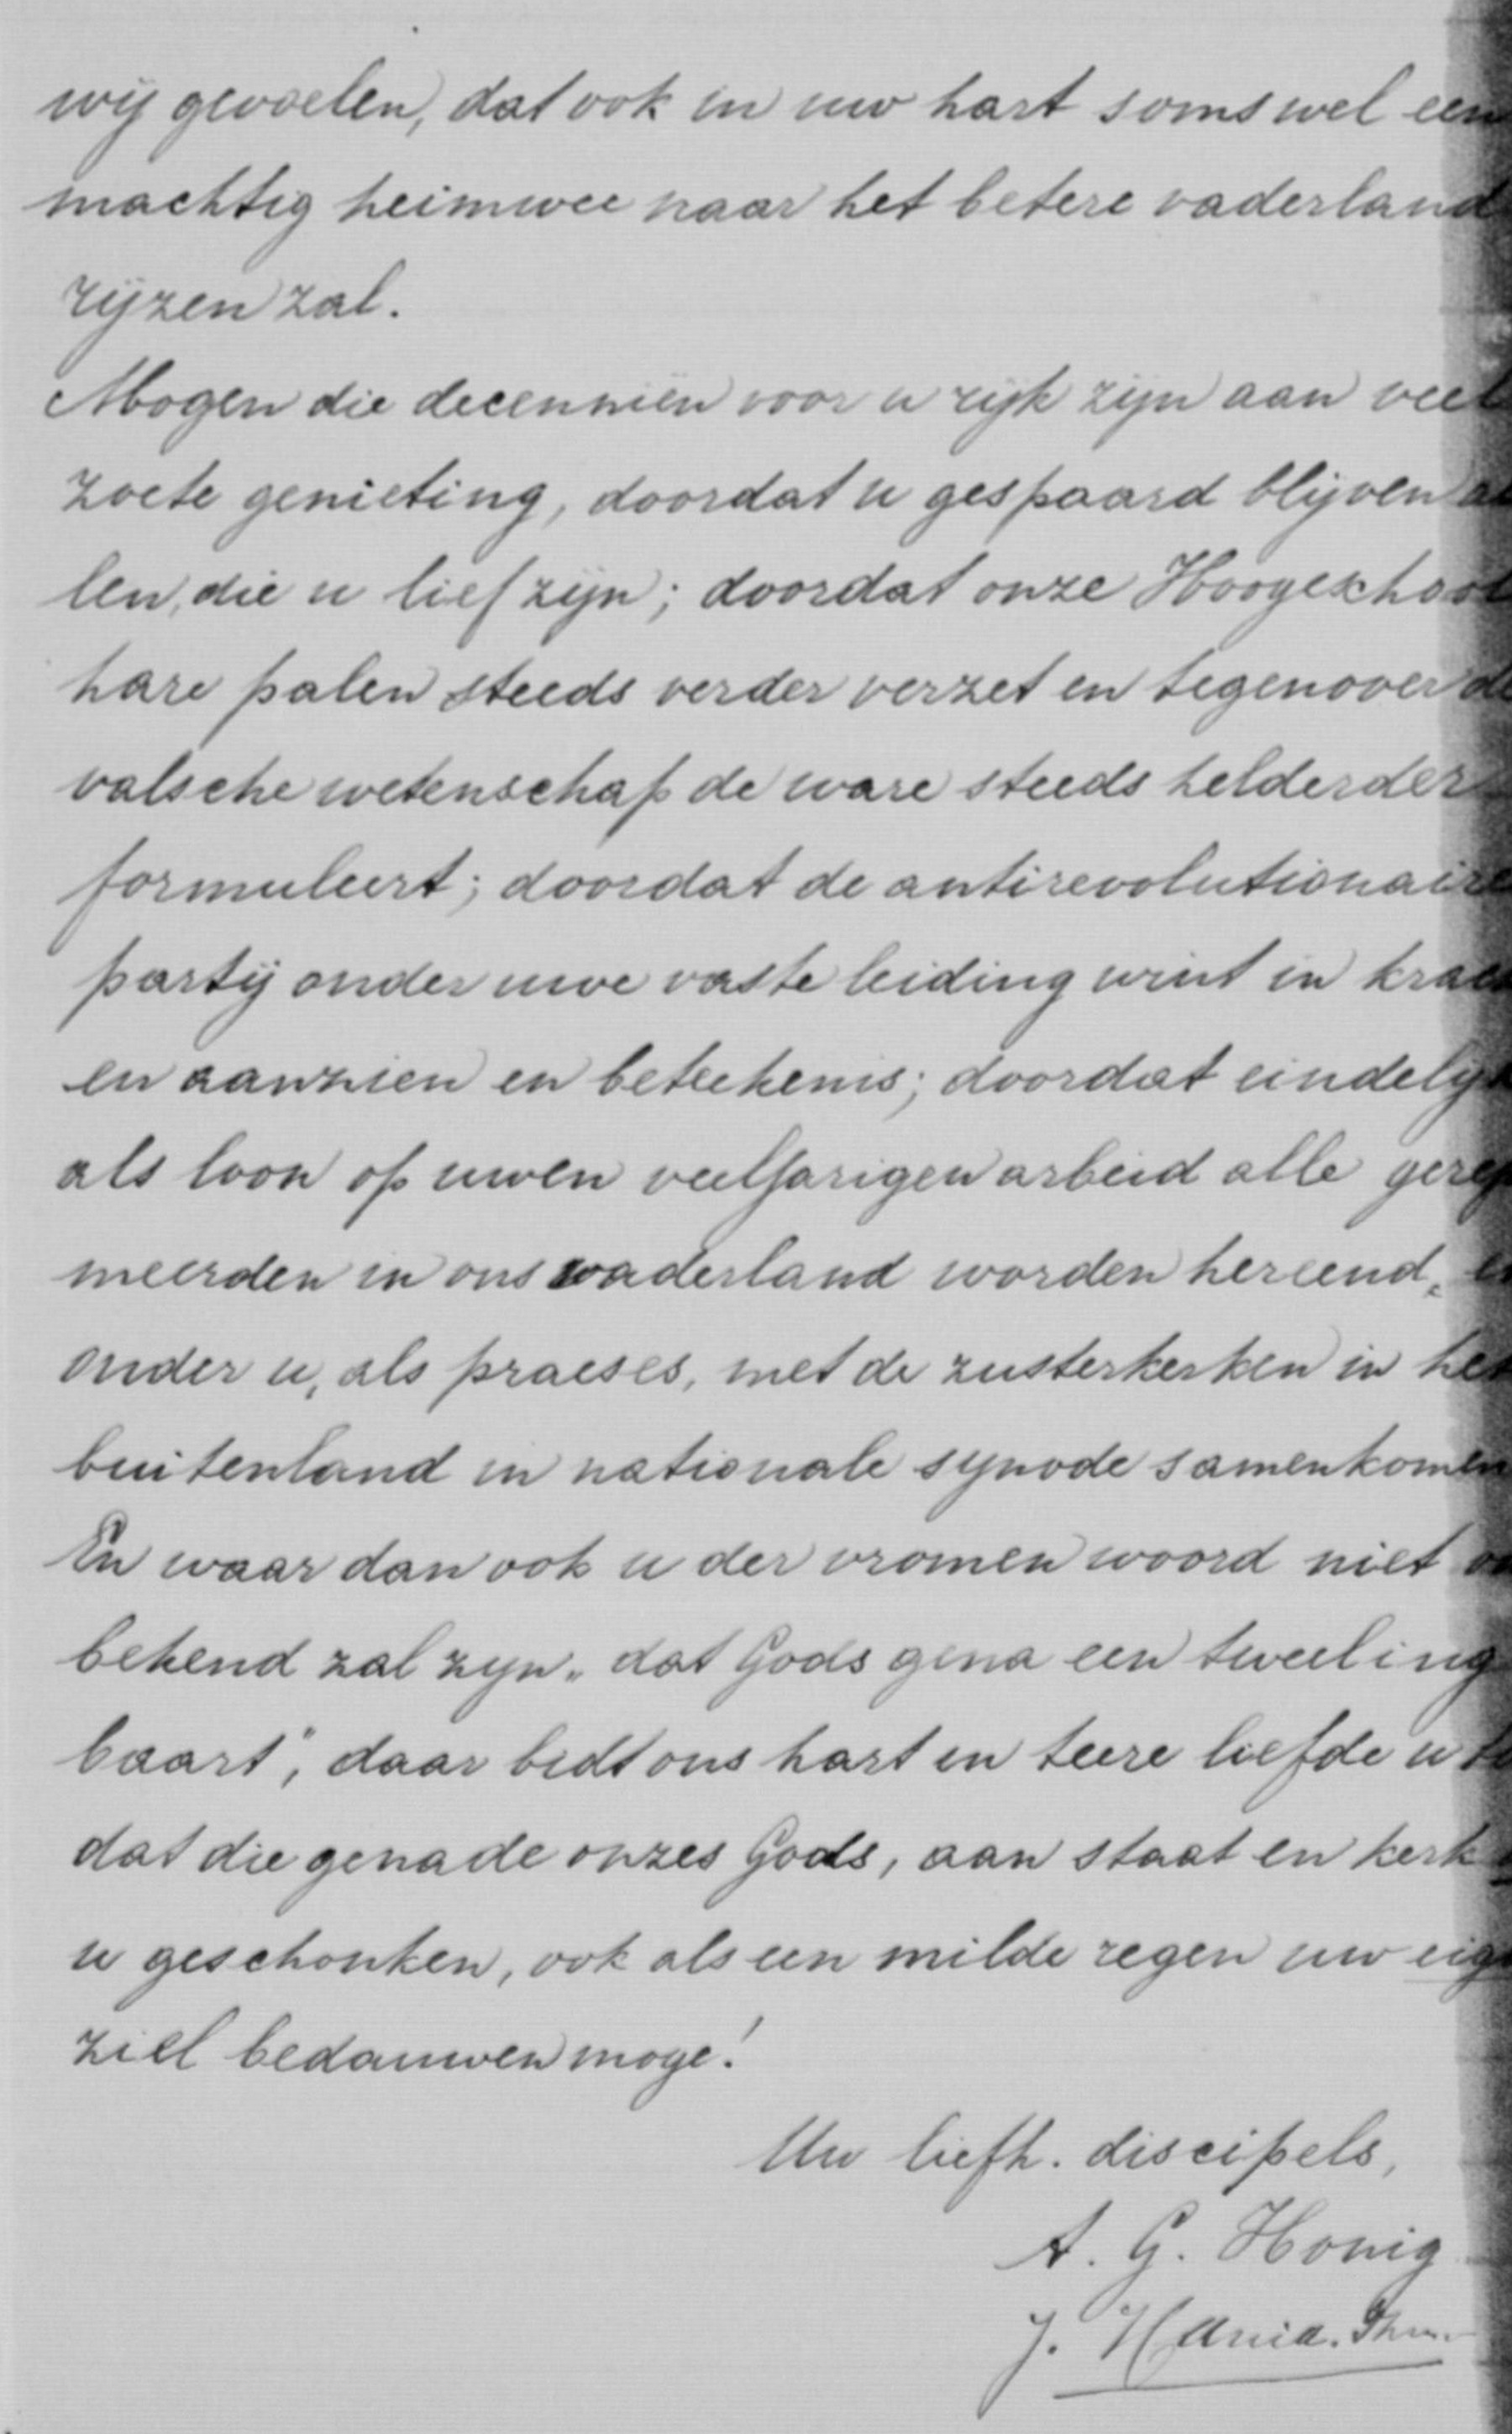 wij gevoelen, dat ook in uw hart soms wel een
machtig heimwee naar het betere vaderland
rijzen zal.
Mogen die decenniën voor u rijk zijn aan veel
zoete genieting, doordat u gespaard blijven
len, die u lief zijn; doordat onze Hoogeschool
hare palen steeds verder verzet en tegenover de
valsche wetenschap de ware steeds helderder
formuleert; doordat de antirevolutionaire
partij onder uwe vaste leiding wint in kracht
en aanzien en beteekenis; doordat eindelijk
als loon op uwen veeljarigen arbeid alle geref
meerden in ons vaderland worden hereend, en
onder u, als praeses, met de zusterkerken in het
buitenland in nationale synode samenkomen
En waar dan ook u der vromen woord niet on
bekend zal zijn „dat Gods gena een tweeling
baart", daar bidt ons hart in teere liefde u
dat die genade onzes Gods, aan staat en kerk
u geschonken, ook als een milde regen uw eigen
ziel bedauwen moge!
Uw liefh. discipels,
A. G. Honig
J. Hania. Phzn.